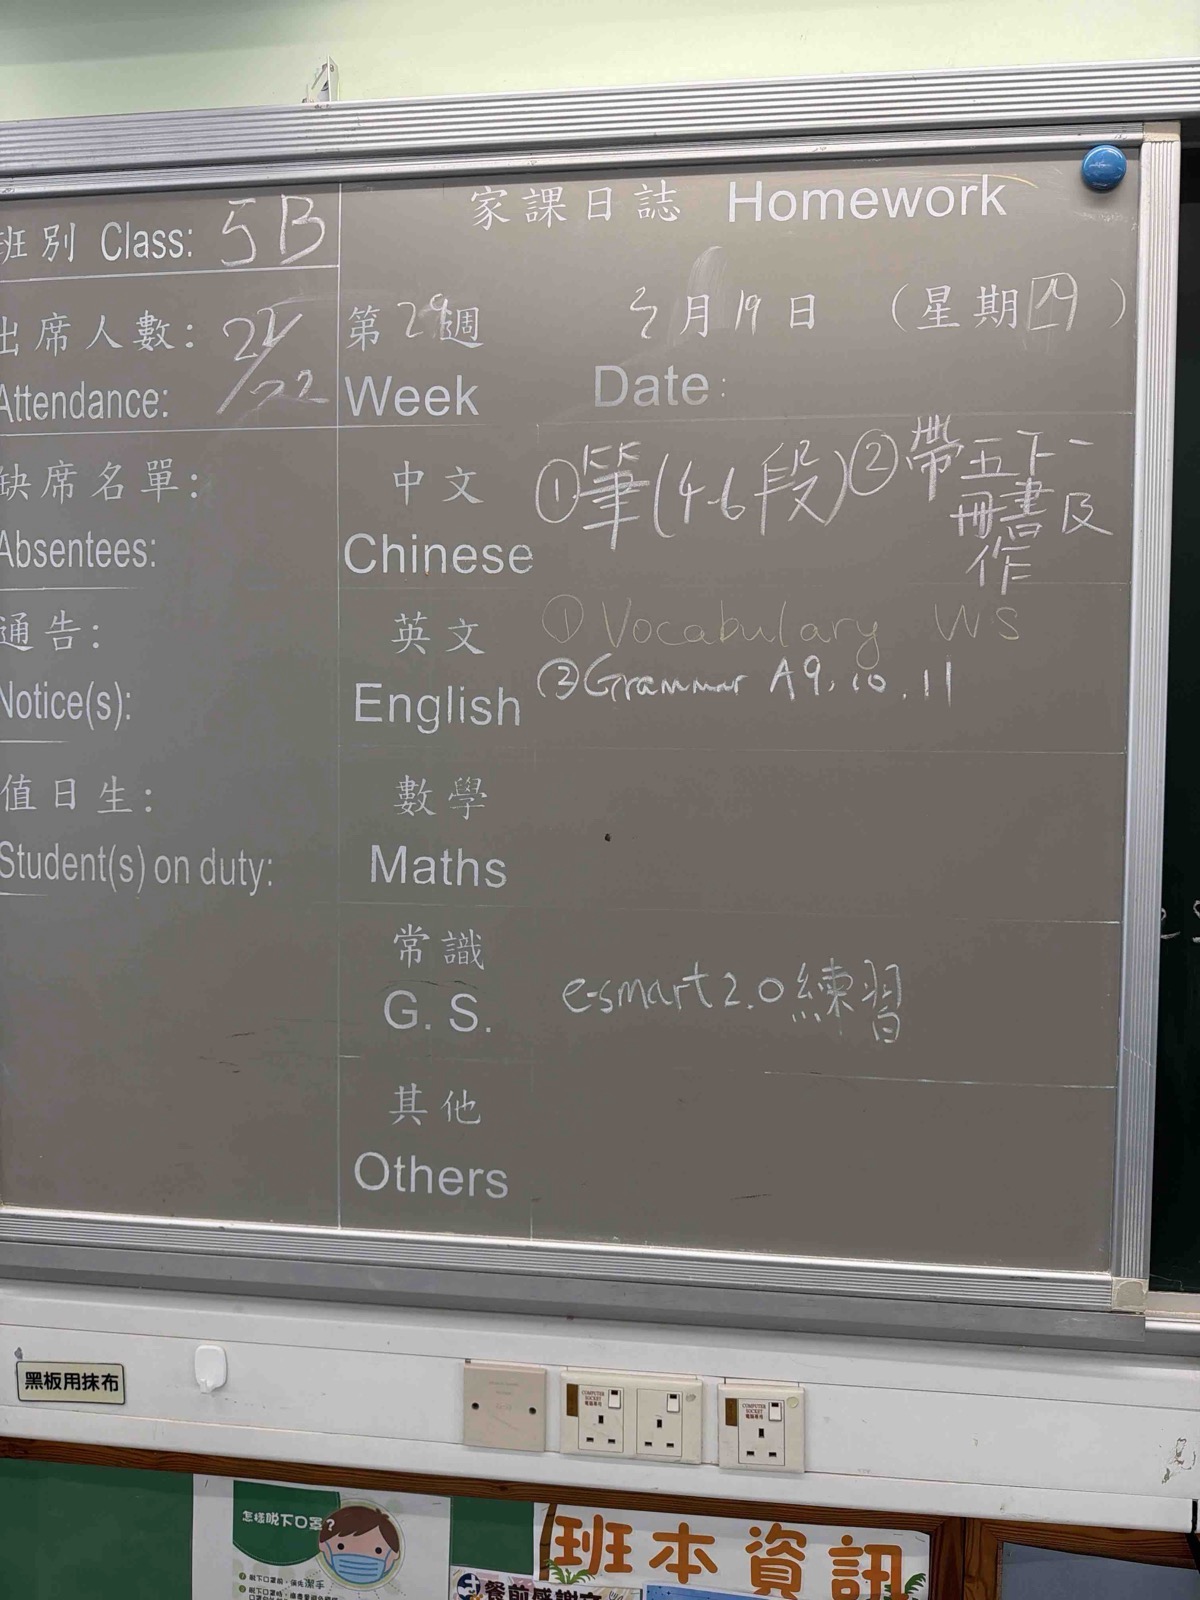 家課日誌 Homework
班別 Class: 5B
出席人數: 21/22
Attendance:
第29週
Week
月19日 (星期四)
Date:
缺席名單:
Absentees:
中文
Chinese
①筆(4-6段)②帶五下一
冊書及
作
通告:
Notice(s):
英文
English
① Vocabulary WS
②Grammar A9, 10, 11
值日生:
Student(s) on duty:
數學
Maths
常識
G. S.
e-smart 2.0練習
其他
Others
黑板用抹布
COMPUTER
SOCKET
電腦專用
COMPUTER
SOCKET
電腦專用
怎樣脫下口罩?
脫下口罩前,先潔手
班本資訊
餐前感謝文